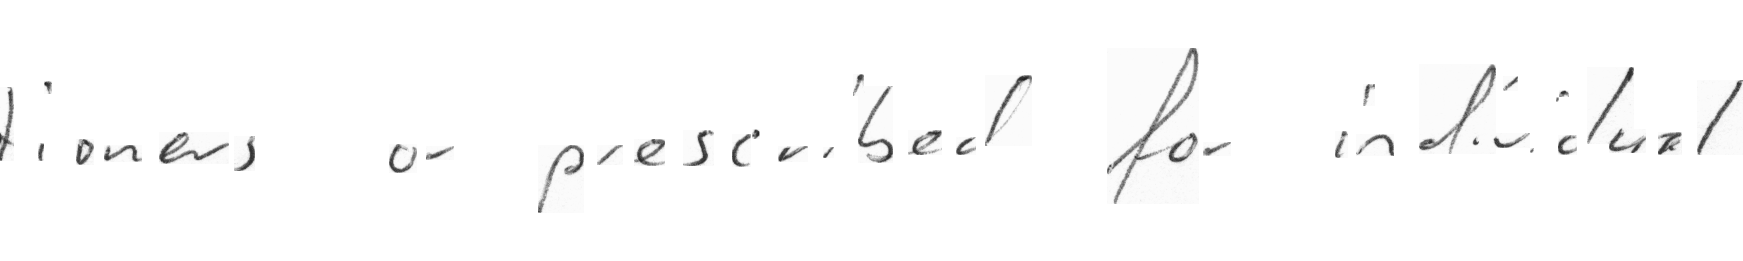 tioners or prescribed for individual